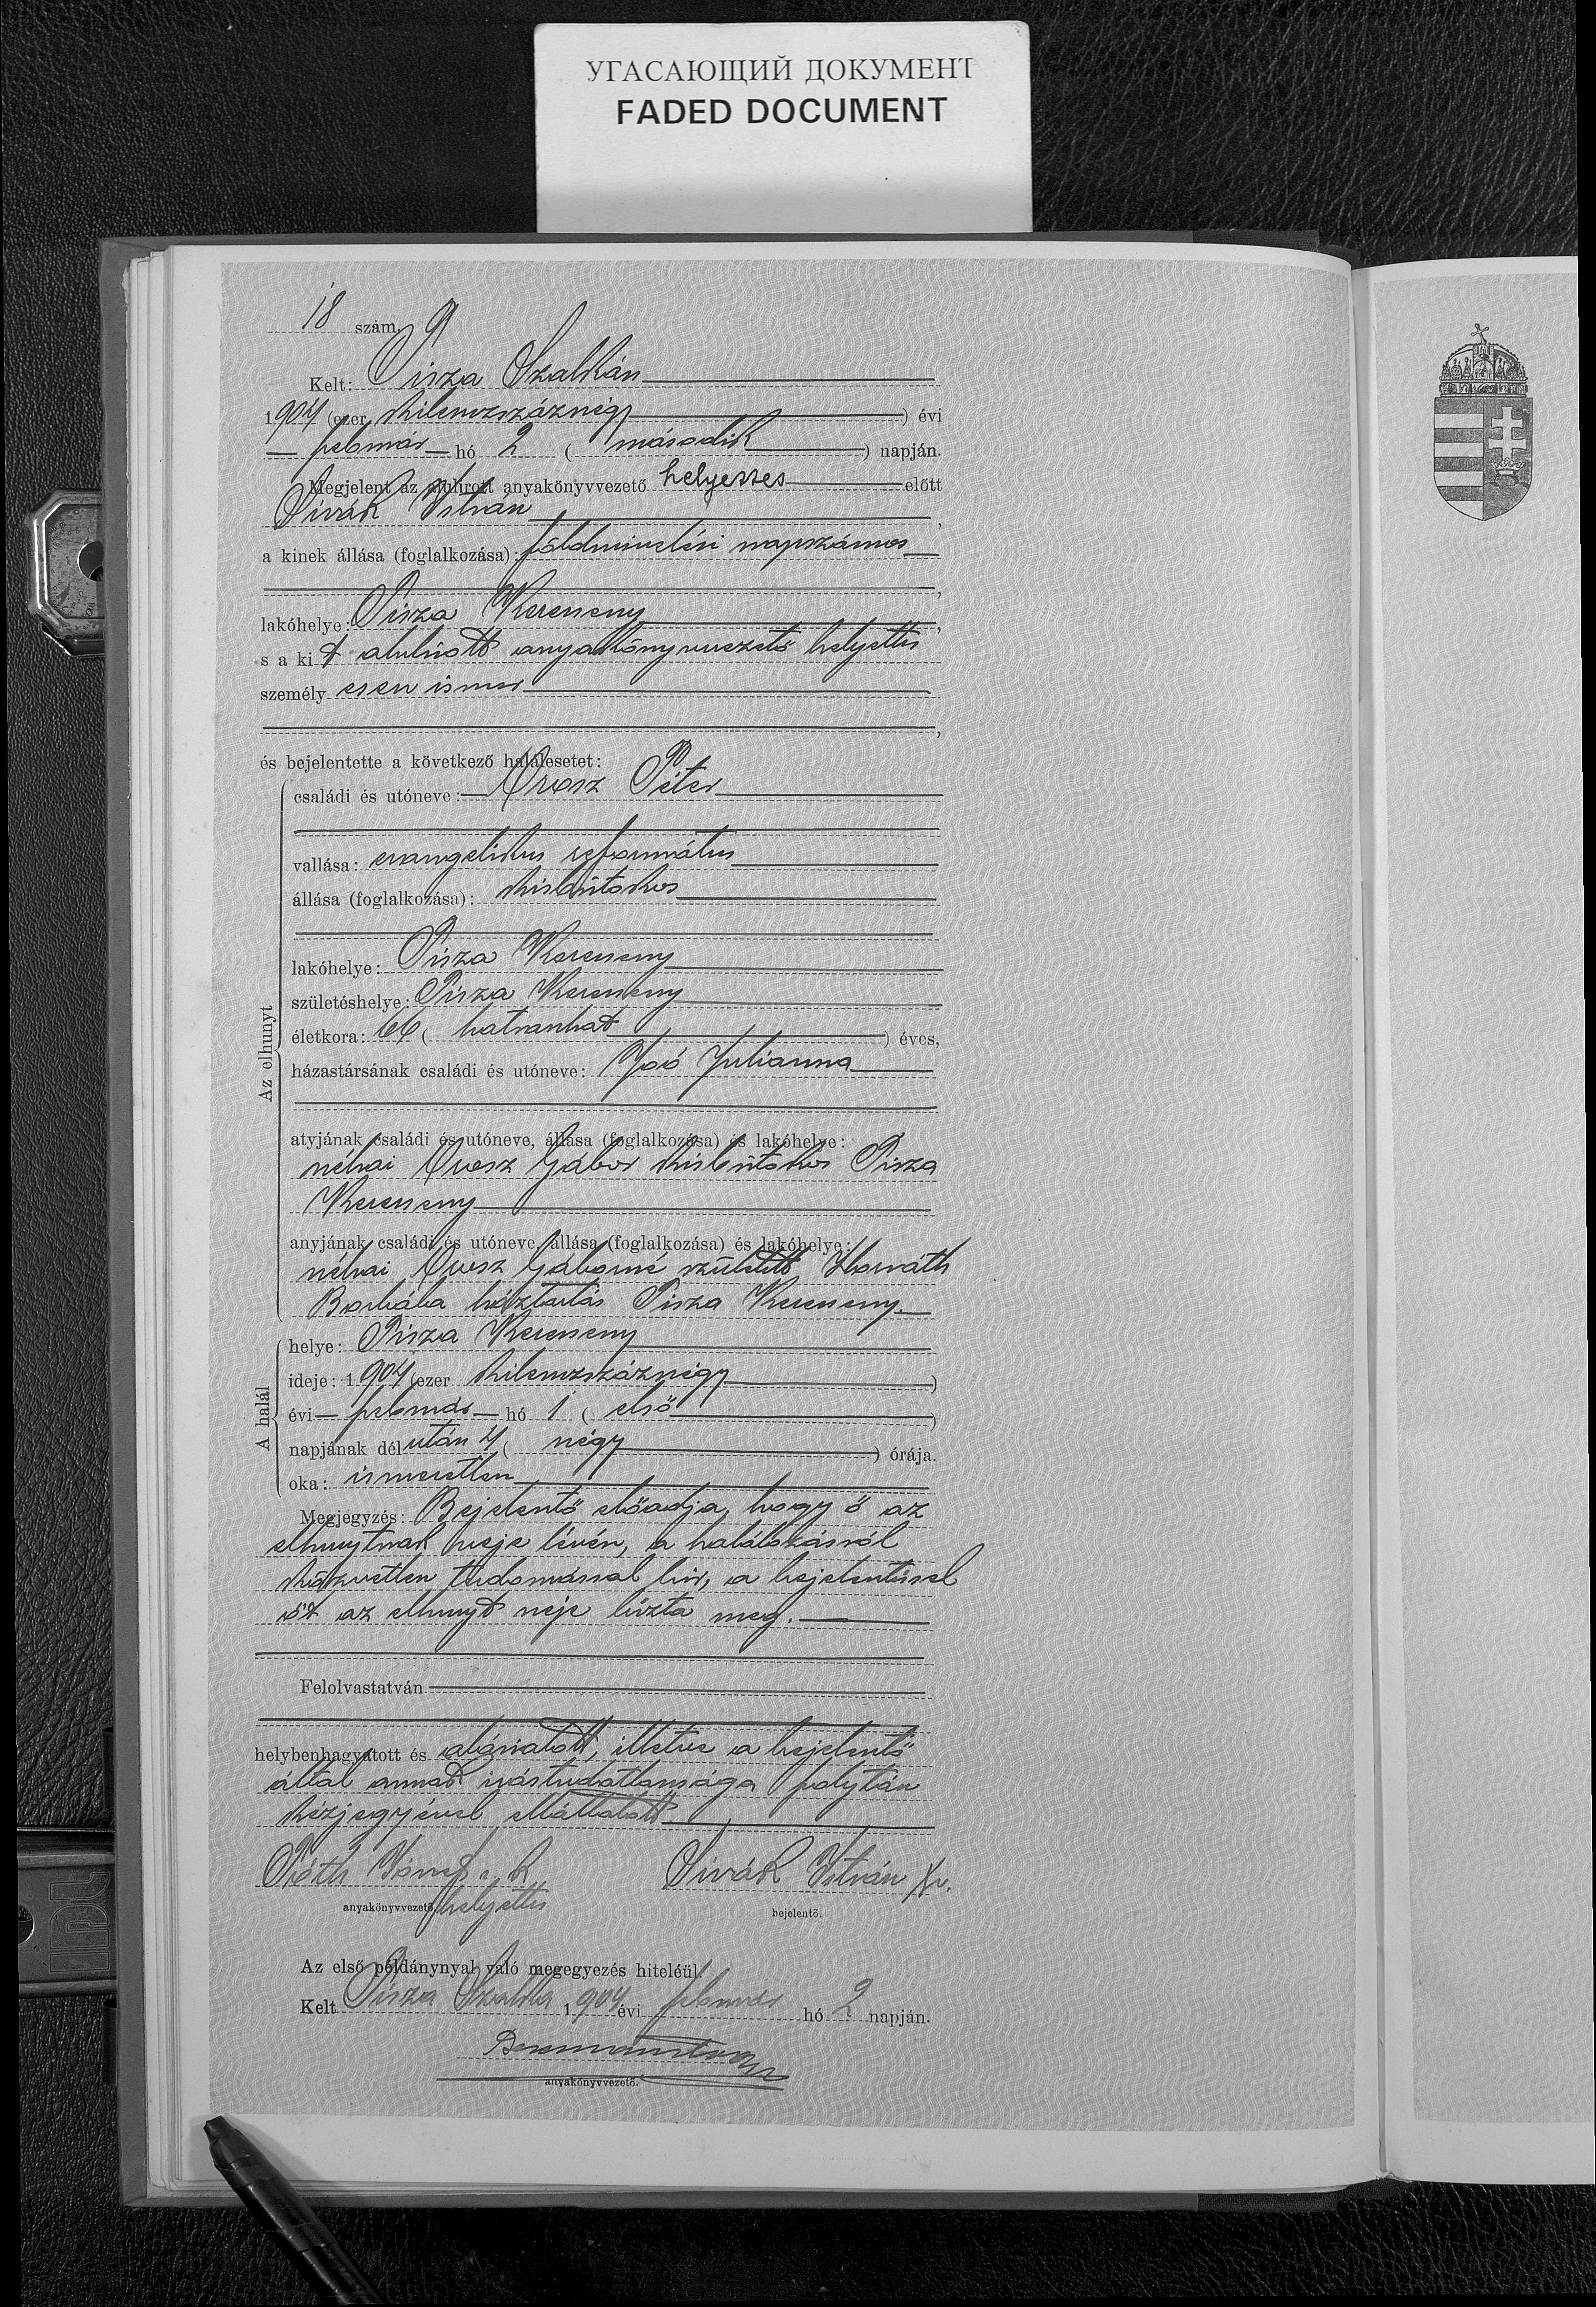 УГАСАЮЩИЙ ДОКУМЕНТ
FADED DOCUMENT
18 szám.
Kelt: Tisza Szalkán
1904 (ezer kilenczszáznégy ) évi
február hó 2 ( második ) napján.
Megjelent az alulirott anyakönyvvezető helyettes előtt
Sivák István ,
a kinek állása (foglalkozása): földmivelési napszámos
,
lakóhelye: Tisza Kerecseny ,
s a kit alulírott anyakönyvvezető helyettes
személyesen ismer
,
és bejelentette a következő halálesetet:
Az elhunyt
családi és utóneve: Orosz Péter
vallása: evangelikus református
állása (foglalkozása): kisbirtokos
lakóhelye: Tisza Kerecseny
születéshelye: Tisza Kerecseny
életkora: 66 ( hatvanhat ) éves,
házastársának családi és utóneve: Joó Julianna
atyjának családi és utóneve, állása (foglalkozása) és lakóhelye:
néhai Orosz Gábor kisbirtokos Tisza
Kerecseny
anyjának családi és utóneve, állása (foglalkozása) és lakóhelye:
néhai Orosz Gáborné született Horváth
Borbála háztartás Tisza Kerecseny.
A halál
helye: Tisza Kerecseny
ideje: 1904 (ezer kilenczszáznégy )
évi február hó 1 ( első )
napjának délután 4 ( négy ) órája.
oka: ismeretlen
Megjegyzés: Bejelentő előadja, hogy ő az
elhunytnak veje lévén, a halálozásról
közvetlen tudomással bír, a bejelentéssel
őt az elhunyt neje bízta meg.
Felolvastatván
helybenhagyatott és aláiratott, illetve a bejelentő
által annak irástudatlansága folytán
kézjegyével elláttatott
Tóth József s. k. Sivák István X v.
anyakönyvvezető helyettes bejelentő.
Az első példánynyal való megegyezés hiteléül.
Kelt Tisza Szalka 1904 évi február hó 2 napján.
anyakönyvvezető.